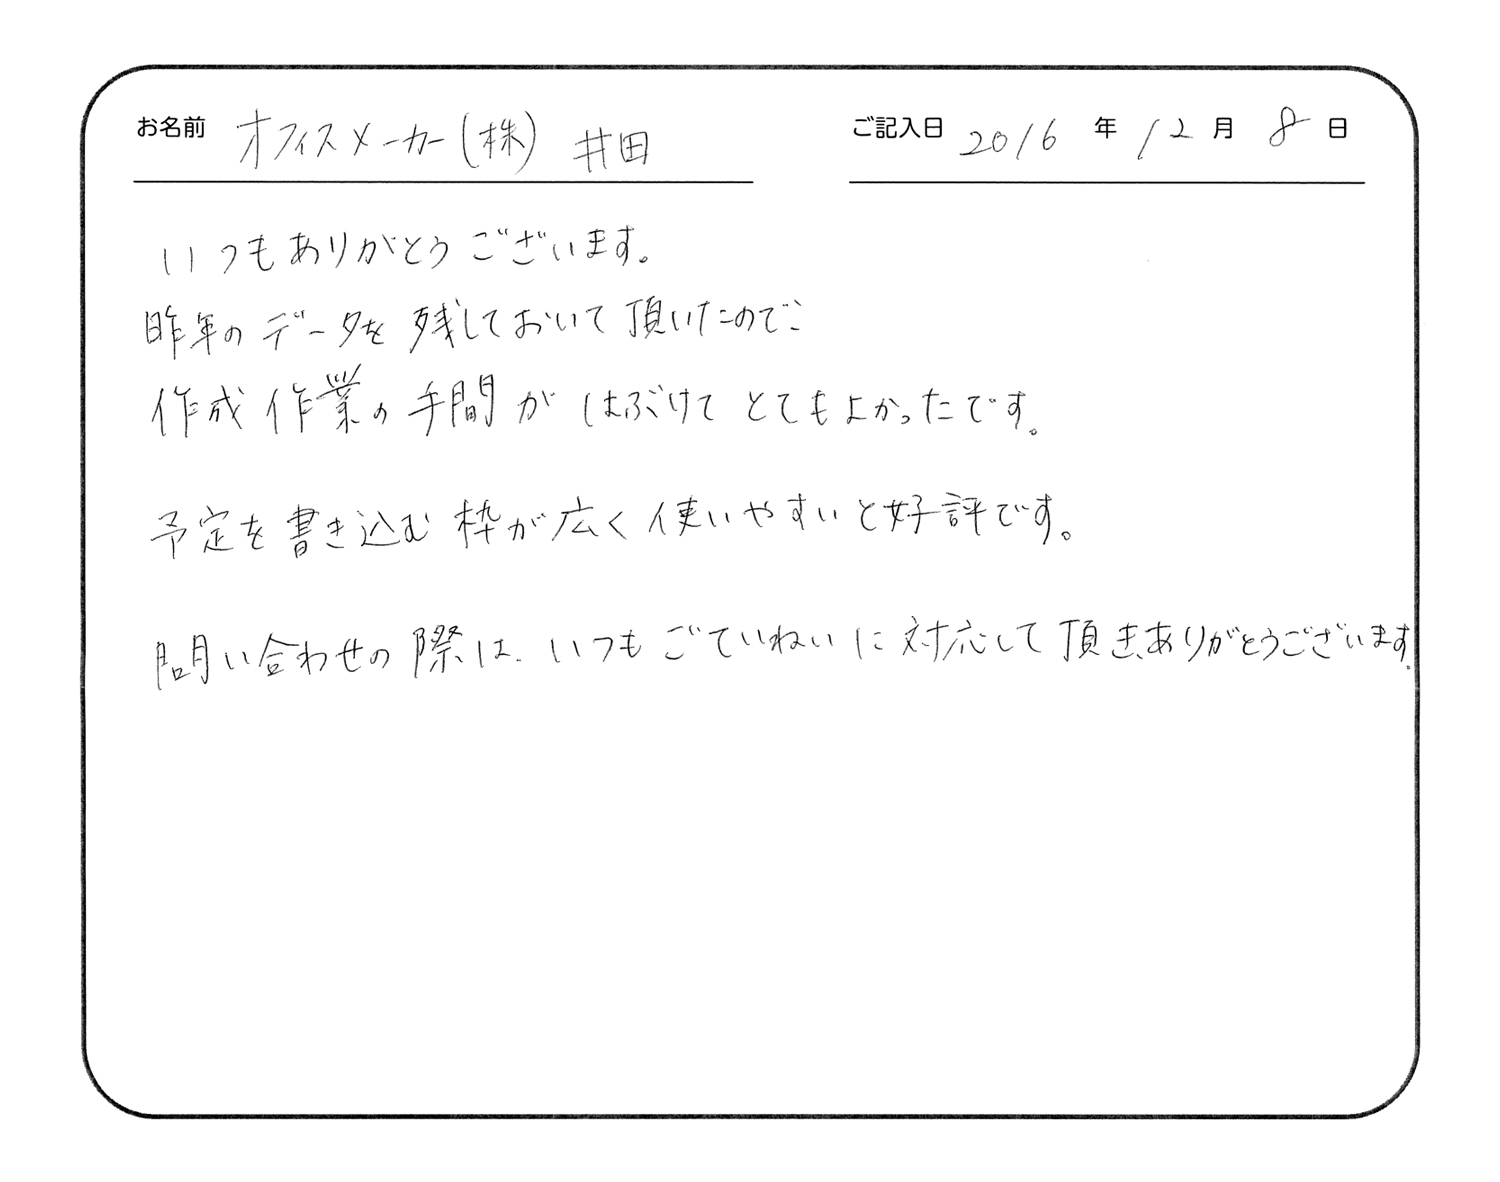 お名前 オフィスメーカー(株) 井田 ご記入日 2016 年 12 月 8 日
いつもありがとうございます。
昨年のデータを残しておいて頂いたので、
作成作業の手間がはぶけてとてもよかったです。
予定を書き込む枠が広く使いやすいと好評です。
問い合わせの際は、いつもごていねいに対応して頂き、ありがとうございます。